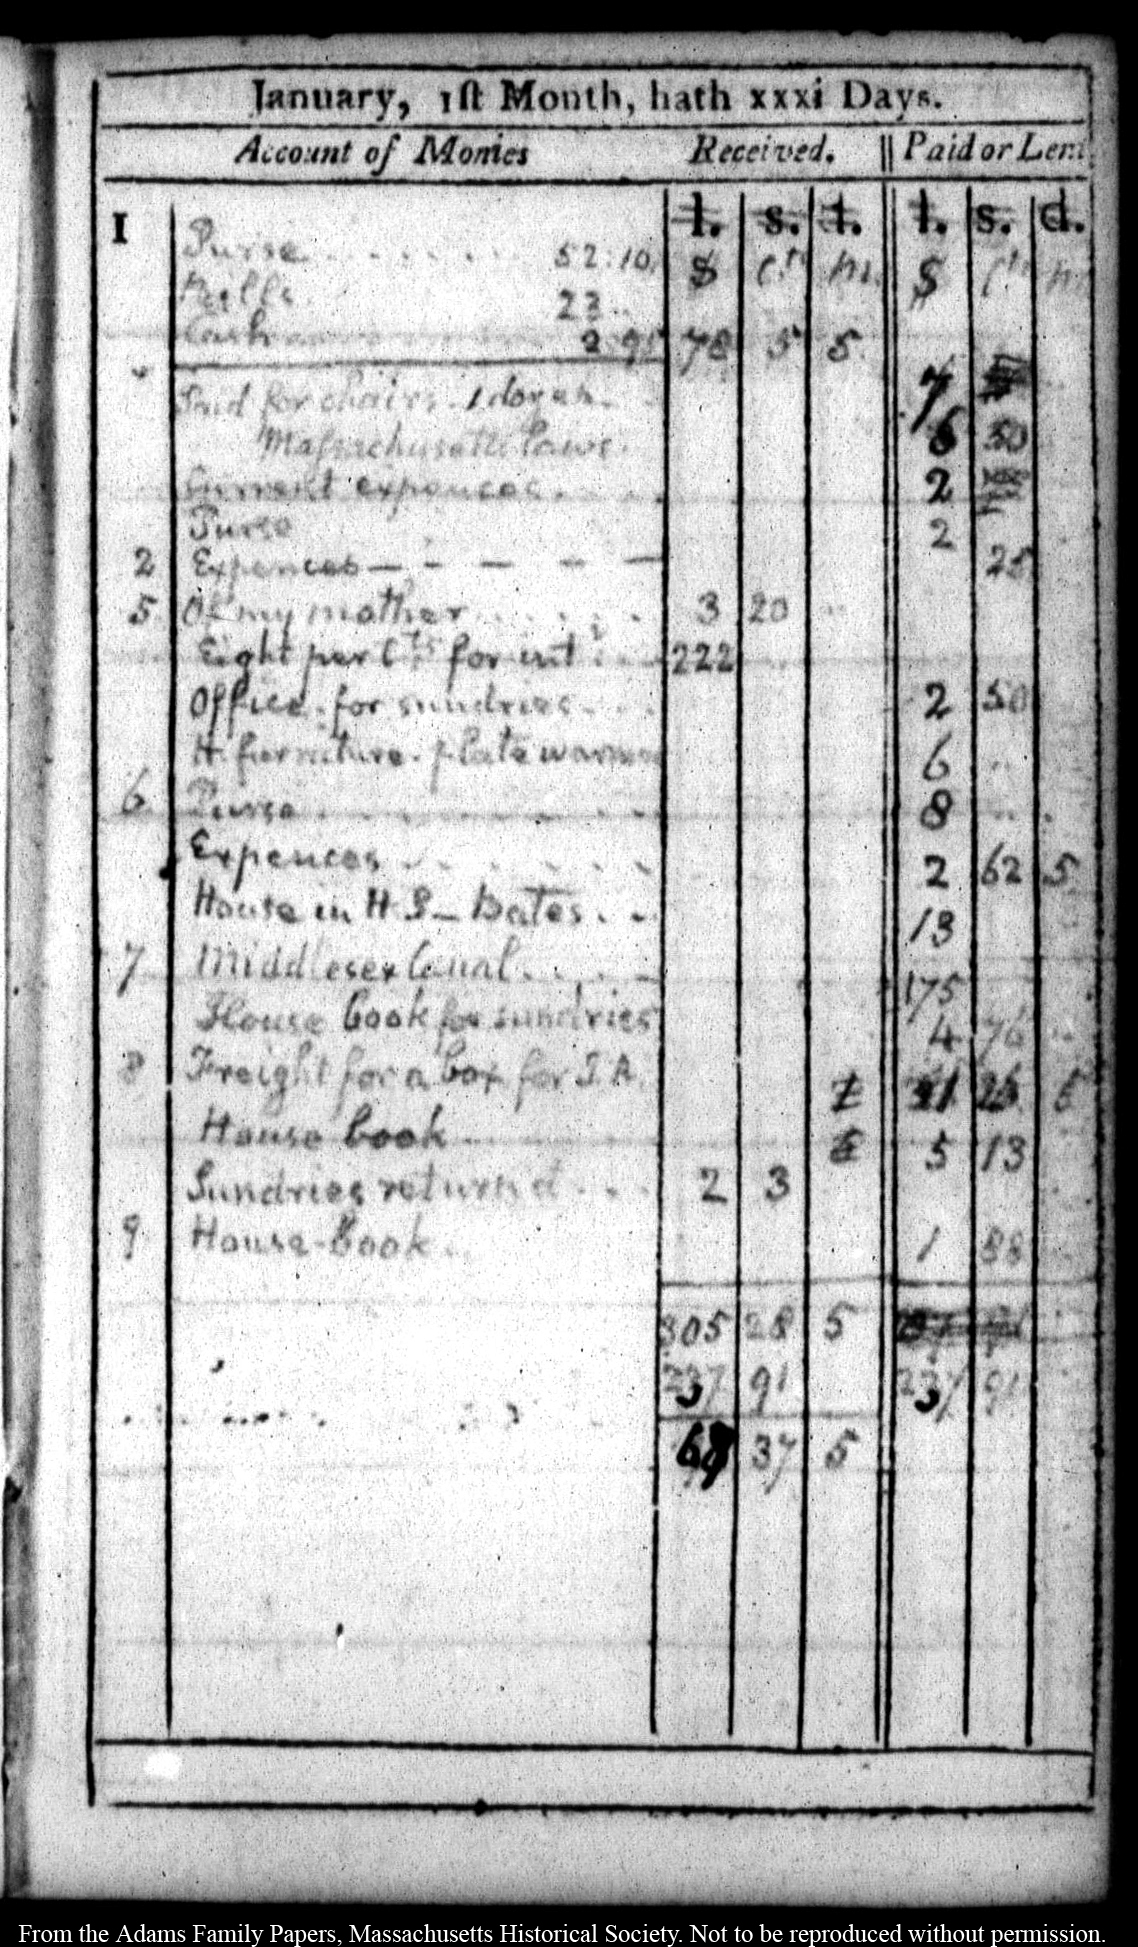 January, 1ſt Month, hath xxxi Days.
Account of Monies Received. Paid or Lent
l. s. d. l. s. d.
1 Purse 52:10 $ Cts m. $ Cts m
Bills 23
Cash 2 95 78 5 5
Paid for chairs 1 dozen 7
Massachusetts Laws 6 50
Current expences 2
Purse 2
2 Expences — — — — 25
5 Of my mother 3 20
Eight per Cts for int 222
Office for sundries 2 50
H. furniture. plate warmer 6
6 Purse 8
Expences 2 62 5
House in H S — Bates 13
7 Middlesex Canal 175
House book for sundries 4 76
8 Freight for a box for J A
House book 5 13
Sundries return'd 2 3
9 House-Book 1 88
305 28 5
237 91 237 91
37 5
From the Adams Family Papers, Massachusetts Historical Society. Not to be reproduced without permission.